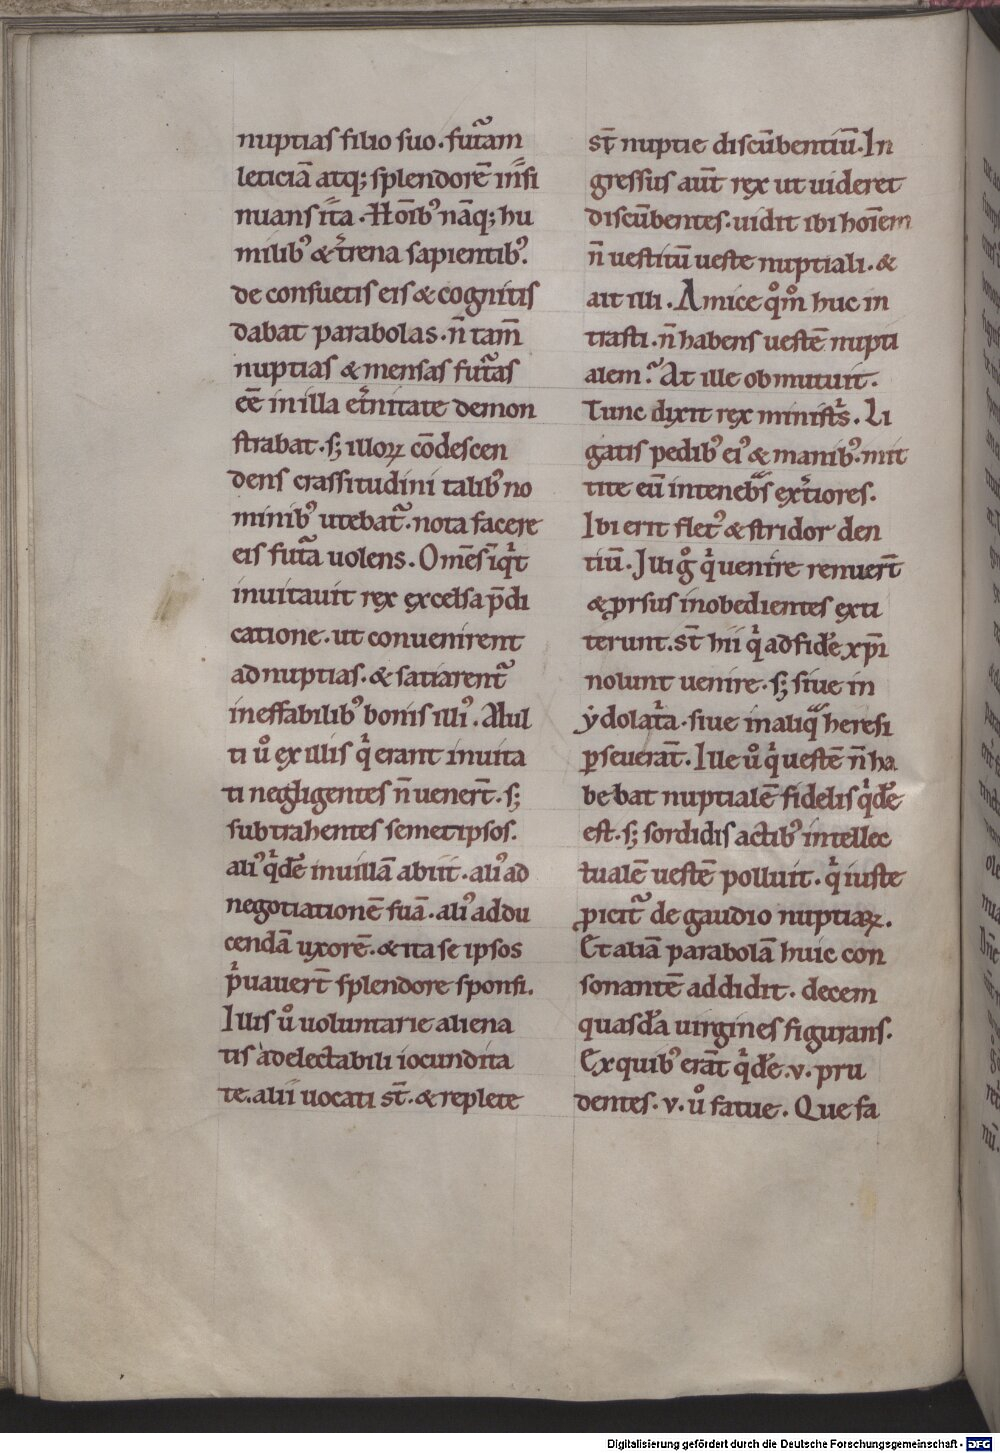 nuptias filio suo. fut̄am
leticiā atq; splendorē insi
nuans ita. Hoīb' nāq; hu
milib' & t̄rena sapientib'.
de consuetis eis & cognitis
dabat parabolas. n̄ tam̄
nuptias & mensas fut̄as
eē in illa et̄nitate demon
strabat. s; illoꝝ cōdescen
dens crassitudini talib' no
minib' utebat̄. nota facere
eis fut̄a uolens. Om̄s iqͥt
inuitauit rex excelsa p̄di
catione. ut conuenirent
ad nuptias. & satiarent̄
ineffabilib' bonis illi'. Mul
ti ů ex illis qͥ erant inuita
ti negligentes n̄ uener̄t. s;
subtrahentes semetipsos.
ali' qͥdē in uillā abiit. ali' ad
negotiationē suā. ali' addu
cendā uxorē. & ita se ipsos
pͥuauer̄t splendore sponsi.
Illis ů uoluntarie aliena
tis a delectabili iocundita
te. alii uocati st̄. & replete
st̄ nuptie discūbentiū. In
gressus aūt rex ut uideret
discūbentes. uidit ibi hoīem
n̄ uestitū ueste nuptiali. &
ait illi. Amice qͦmͦ huc in
trasti. n̄ habens uestē nupti
alem? At ille obmutuit.
Tunc dixit rex ministͥs. Li
gatis pedib' ei' & manib'. mit
tite eū in tenebᵃs extͥiores.
Ibi erit flet' & stridor den
tiū. Illi gͦ qͥ uenire renuer̄t
& ꝓrsus inobedientes exti
terunt. st̄ hii qͥ ad fidē xp̄i
nolunt uenire. s; siue in
ẏdolat̄a. siue in aliqᵃ heresi
ꝑseuerāt. Ille ů qͥ uestē n̄ ha
bebat nuptialē fidelis qͥdē
est. s; sordidis actib' intellec
tualē uestē polluit. qͥ iuste
ꝓicit̄ de gaudio nuptiaꝝ.
Et aliā parabolā huic con
sonantē addidit. decem
quasdā uirgines figurans.
Ex quib' erāt qͥdē .v. pru
dentes. v. ů fatue. Que fa
Digitalisierung gefördert durch die Deutsche Forschungsgemeinschaft - DFG